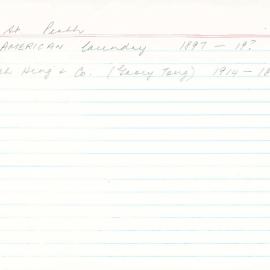 St Perth
AMERICAN Laundry 1897 - 19?
Hing & Co. ( Tong) 1914 - 18